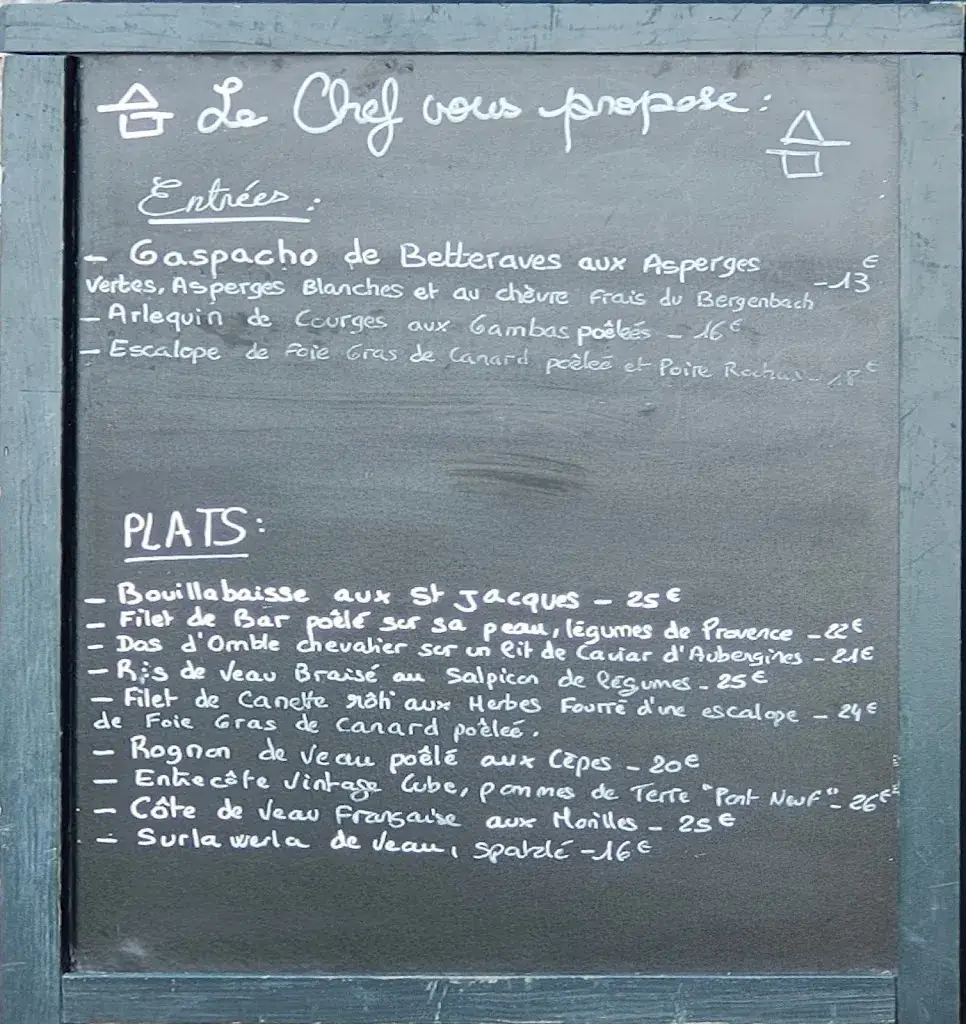 Le Chef vous propose :
Entrées :
- Gaspacho de Betteraves aux Asperges
vertes, Asperges Blanches et au chèvre Frais du Bergenbach -13€
- Arlequin de Courges aux Gambas poêleés - 16€
- Escalope de Foie Gras de Canard poêleé et Poire Rochas - 18€
PLATS :
- Bouillabaisse aux St Jacques - 25€
- Filet de Bar poêlé sur sa peau, légumes de Provence - 22€
- Dos d'Omble chevalier sur un lit de Caviar d'Aubergines - 21€
- Ris de Veau Braisé au Salpicon de légumes - 25€
- Filet de Canette rôti aux Herbes Fourré d'une escalope - 24€
de Foie Gras de Canard poêleé.
- Rognon de veau poêlé aux Cèpes - 20€
- Entrecôte Vintage Cube, pommes de Terre "Pont Neuf" - 26€
- Côte de Veau Française aux Morilles - 25€
- Surlawerla de Veau, spatzlé - 16€